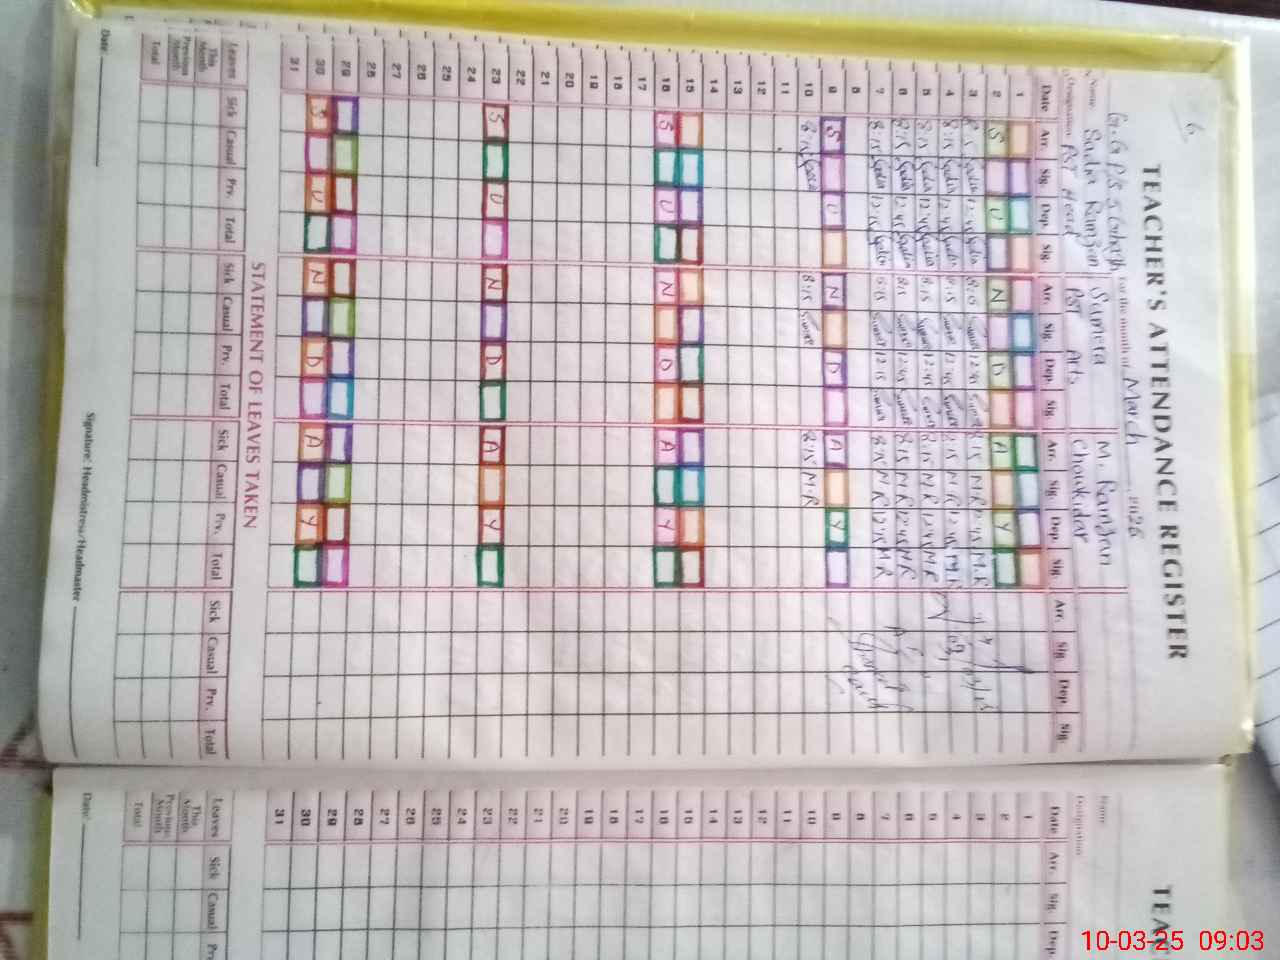 TEACHER'S ATTENDANCE REGISTER
6
G.G.P/S For the month of March 2025
Name Sadia Ramzan Sumera M. Ramzan
Designation PST Head PST Arts Chowkidar
Date Arr. Sig. Dep. Sig. Arr. Sig. Dep. Sig. Arr. Sig. Dep. Sig. Arr. Sig. Dep. Sig.
1
2 S U N D A Y
3 8:15 Sadia 12:45 Sadia 8:15 12:45 8:15 M.R 12:45 M.R
4 8:15 Sadia 12:45 Sadia 8:15 12:45 8:15 M R 12:45 M.R
5 8:15 Sadia 12:45 Sadia 8:15 12:45 8:15 M R 12:45 M R
6 8:15 Sadia 12:45 Sadia 8:15 12:45 8:15 M R 12:45 M R
7 8:15 Sadia 12:15 Sadia 8:15 12:15 8:15 M R 12:15 M R
8
9 S U N D A Y
10 8:15 Sadia 8:15 8:15 M.R
11
12
13
14
15
16 S U N D A Y
17
18
19
20
21
22
23 S U N D A Y
24
25
26
27
28
29
30 S U N D A Y
31
STATEMENT OF LEAVES TAKEN
Leaves Sick Casual Prv. Total Sick Casual Prv. Total Sick Casual Prv. Total Sick Casual Prv. Total
This Month
Previous Month
Total
Date: Signature: Headmistress/Headmaster
TEAC
Name
Designation
Date Arr. Sig. Dep.
1
2
3
4
5
6
7
8
9
10
11
12
13
14
15
16
17
18
19
20
21
22
23
24
25
26
27
28
29
30
31
Leaves Sick Casual Prv
This Month
Previous Month
Total
Date:
10-03-25 09:03